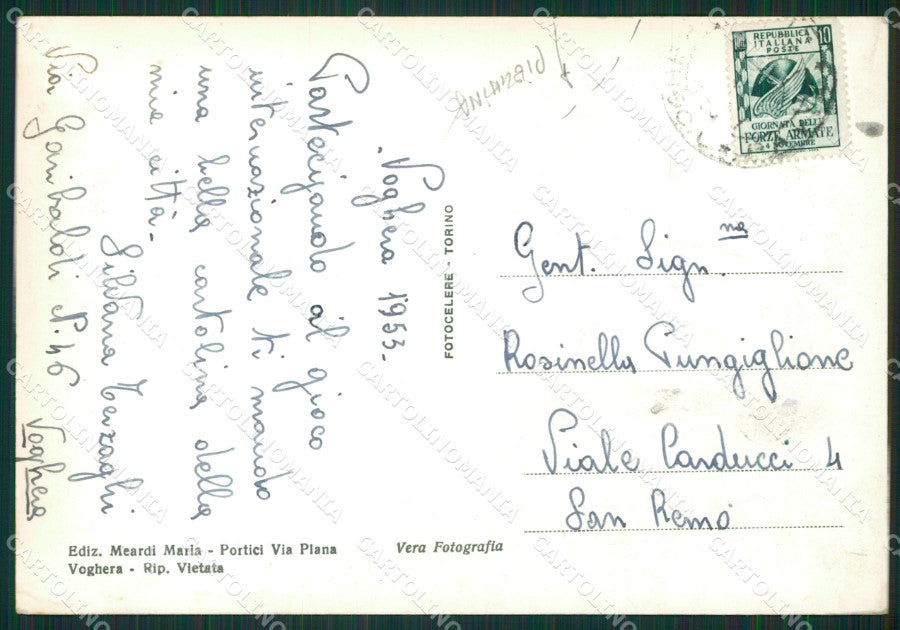 Voghera 1953.
Partecipando al gioco
internazionale ti mando
una bella cartolina della
mia città.
Silvana Terzaghi
Via Garibaldi N. 46
Voghera
PIEGHINA
FOTOCELERE - TORINO
REPUBBLICA
ITALIANA
POSTE
10
GIORNATA DELLE
FORZE ARMATE
4 NOVEMBRE
Gent. Sign.na
Rosinella Pungiglione
Viale Carducci 4
San Remo
Ediz. Meardi Maria - Portici Via Plana
Voghera - Rip. Vietata
Vera Fotografia
CARTOLINOMANIA